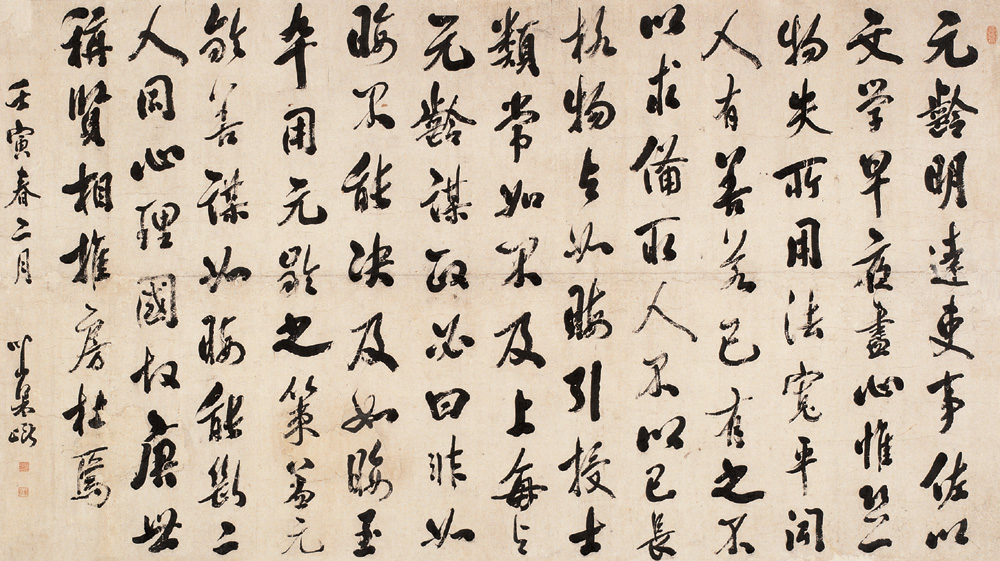 元齡明達吏事佐以
文学早夜盡心惟恐一
物失所用法寬平闻
人有善若己有之不
以求備取人不以己長
格物与如晦引授士
類常如不及上每与
元齡謀政必曰非如
晦不能决及如晦至
卒用元齡之策盖元
齡善謀如晦能斷二
人同心理國故唐世
稱賢相推房杜焉
壬寅春二月